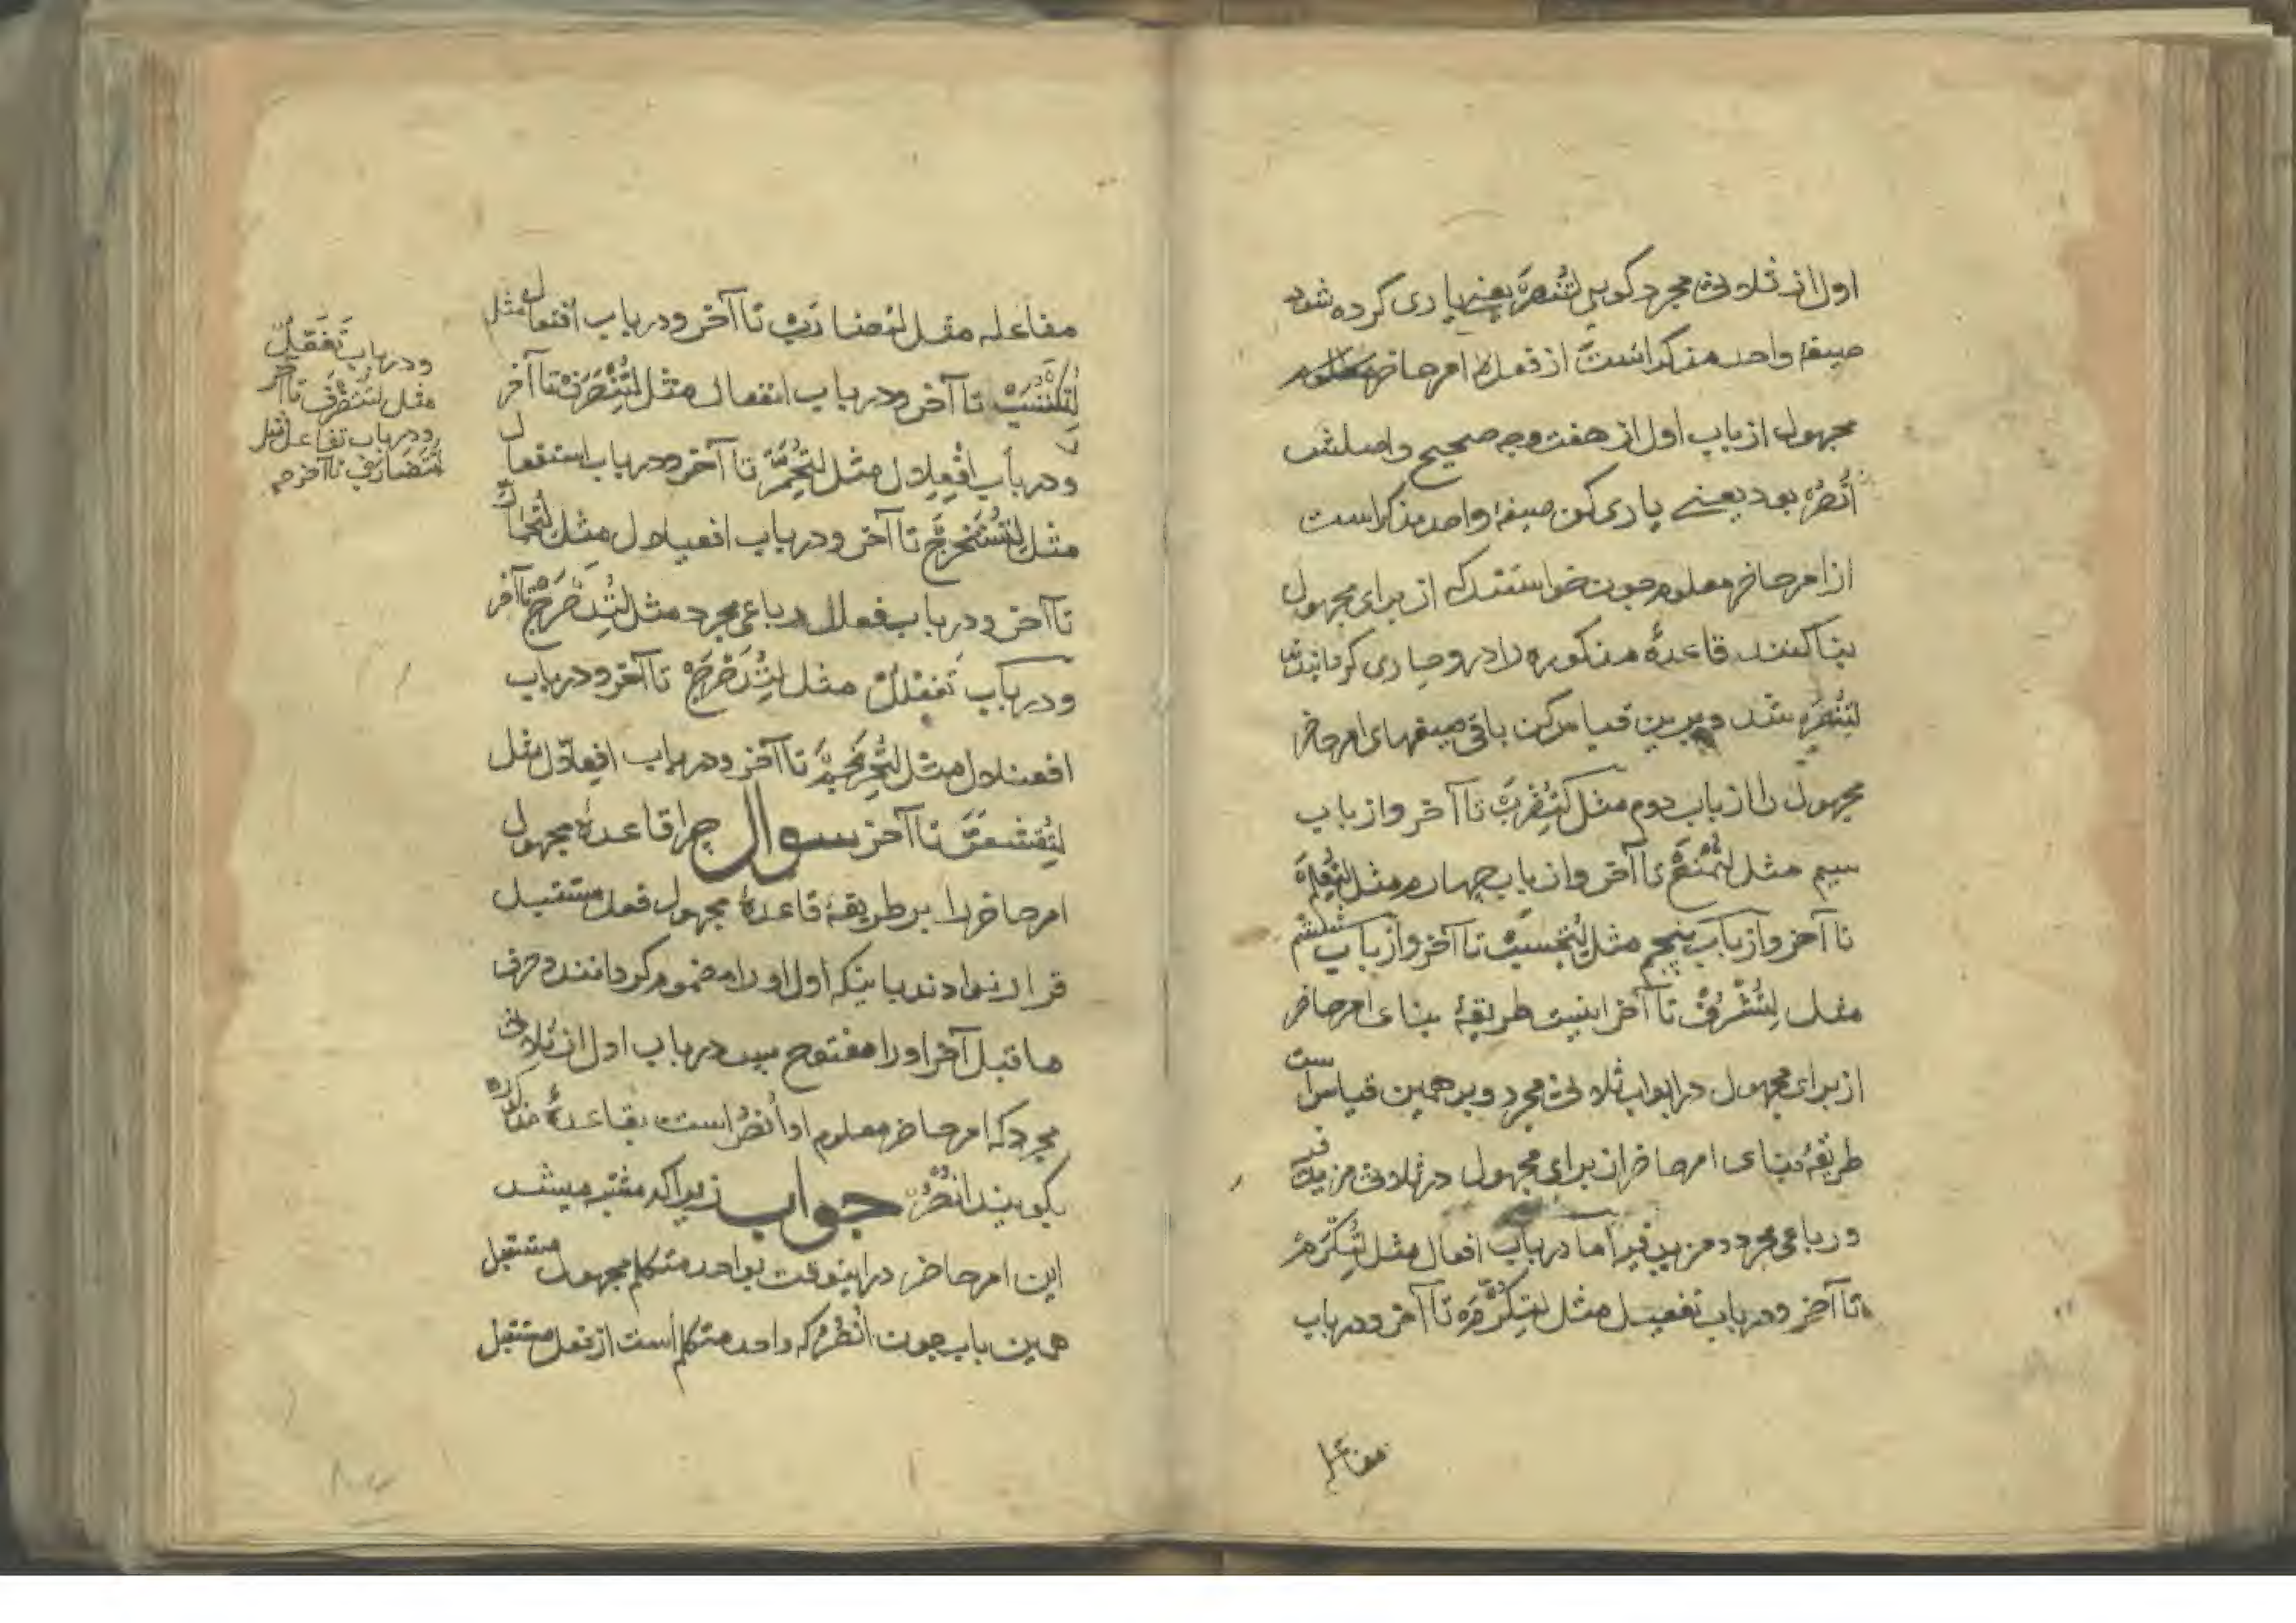 اول از ثلاثی مجرد کویی لِتُنْصَرْ یعنی یاری کرده شو
صیغهٔ واحد مذکر است از فعل امر حاضر
مجهول از باب اول از هفت وجه صحیح و اصلش
اُنْصُرْ بود یعنے یاری کن صیغهٔ واحد مذکر است
از امر حاضر معلوم چون خواستند که از برای مجهول
بنا کنند قاعدهٔ مذکوره را درو جاری کردانیدند
لِتُنْصَرْ شد و برین قیاس کن باقی صیغهای امر حاضر
مجهول را از باب دوم مثل لِتُضْرَبْ تا آخر و از باب
سیم مثل لِتُمْنَعْ تا آخر و از باب چهارم مثل لِتُعْلَمْ
تا آخر و از باب پنجم مثل لِتُحْسَبْ تا آخر و از باب ششم
مثل لِتُشْرَفْ تا آخر اینست طریقهٔ بنای امر حاضر
از برای مجهول در ابواب ثلاثی مجرد و بر همین قیاس است
طریقهٔ بنای امر حاضر از برای مجهول در ثلاثی مزید فیه
و رباعی مجرد و مزید فیه اما در باب افعال مثل لِتُکْرَمْ
تا آخر و در باب تفعیل مثل لِتُکَرَّمْ تا آخر و در باب
مفاعله
مفاعله مثل لِتُضَارَبْ تا آخر و در باب افتعال مثل
لِتُکْتَسَبْ تا آخر و در باب انفعال مثل لِتُنْصَرَفْ تا آخر
و در باب اِفْعِلال مثل لِتُحْمَرَّ تا آخر و در باب استفعال
مثل لِتُسْتَخْرَجْ تا آخر و در باب افعیلال مثل لِتُحْمَارَّ
تا آخر و در باب فعلال رباعی مجرد مثل لِتُدَحْرَجْ تا آخر
و در باب تَفَعْلُلْ مثل لِتُتَدَحْرَجْ تا آخر و در باب
افعنلال مثل لِتُحْرَنْجَمْ تا آخر و در باب افعلال مثل
لِتُقْشَعَرَّ تا آخر سوال چرا قاعدهٔ مجهول
امر حاضر را بر طریقهٔ قاعدهٔ مجهول فعل مستقبل
قرار ندادند باینکه اول او را مضموم کردانند و حرف
ما قبل آخر او را مفتوح پس در باب اول از ثلاثی
مجرد که امر حاضر معلوم او اُنْصُرْ است بقاعدهٔ مذکوره
بکویند اُنْصَرْ جواب زیرا که مشتبه میشد
این امر حاضر در اینوقت بواحد متکلم مجهول مستقبل
همین باب چون اُنْصَرُ که واحد متکلم است از فعل مستقبل
و در باب تَفَعُّلْ
مثل لِتُتَصَرَّفْ تا آخر
و در باب تفاعل مثل
لِتُتَضَارَبْ تا آخر